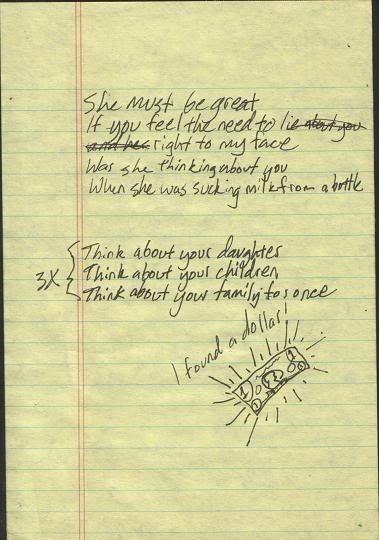 She must be great
If you feel the need to lie about you
and her right to my face
Was she thinking about you
When she was sucking milk from a bottle
3X
Think about your daughter
Think about your children
Think about your family for once
I found a dollar!
1 1
1